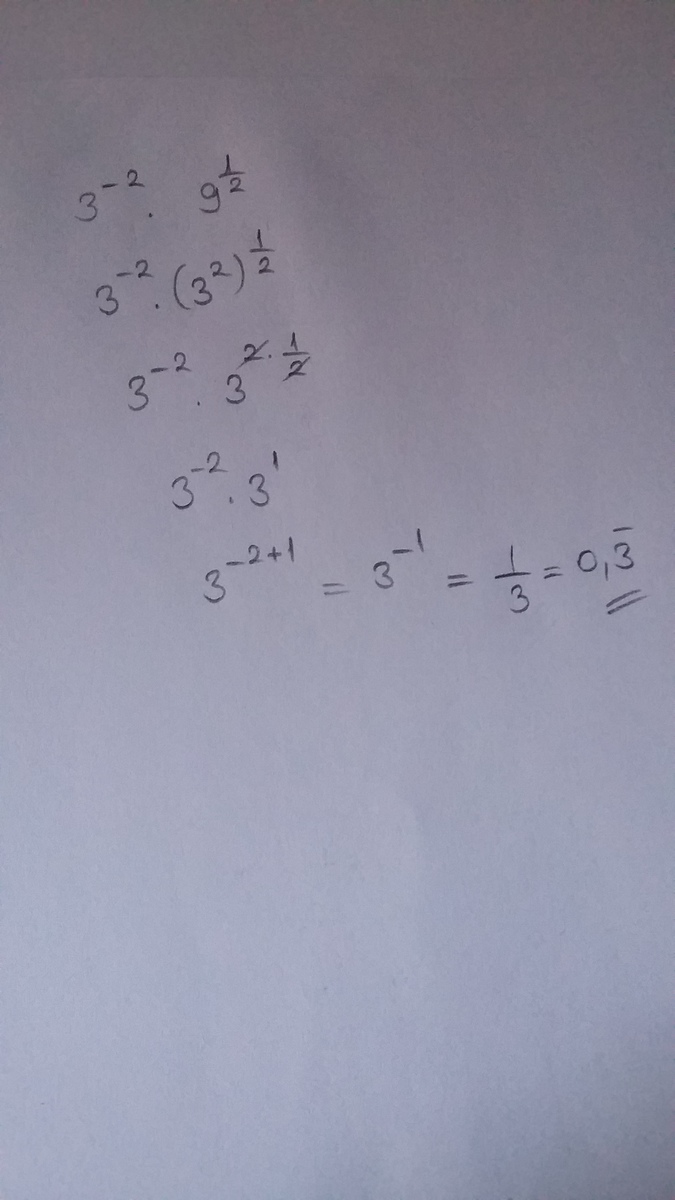 3⁻² . 9^(1/2)
3⁻² . (3²)^(1/2)
3⁻² . 3^(2 . 1/2)
3⁻² . 3¹
3⁻²⁺¹ = 3⁻¹ = 1/3 = 0,3̅